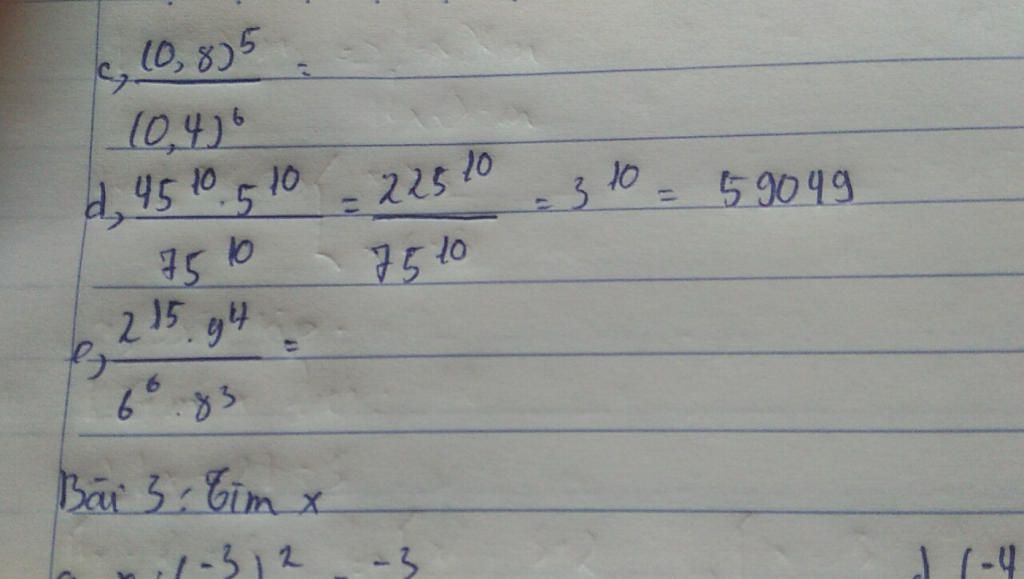 c, (0,8)^5 / (0,4)^6 =
d, 45^10 . 5^10 / 75^10 = 225^10 / 75^10 = 3^10 = 59049
e, 2^15 . 9^4 / 6^6 . 8^3 =
Bài 3: Tìm x
(-3)^2 = -3 d) (-4